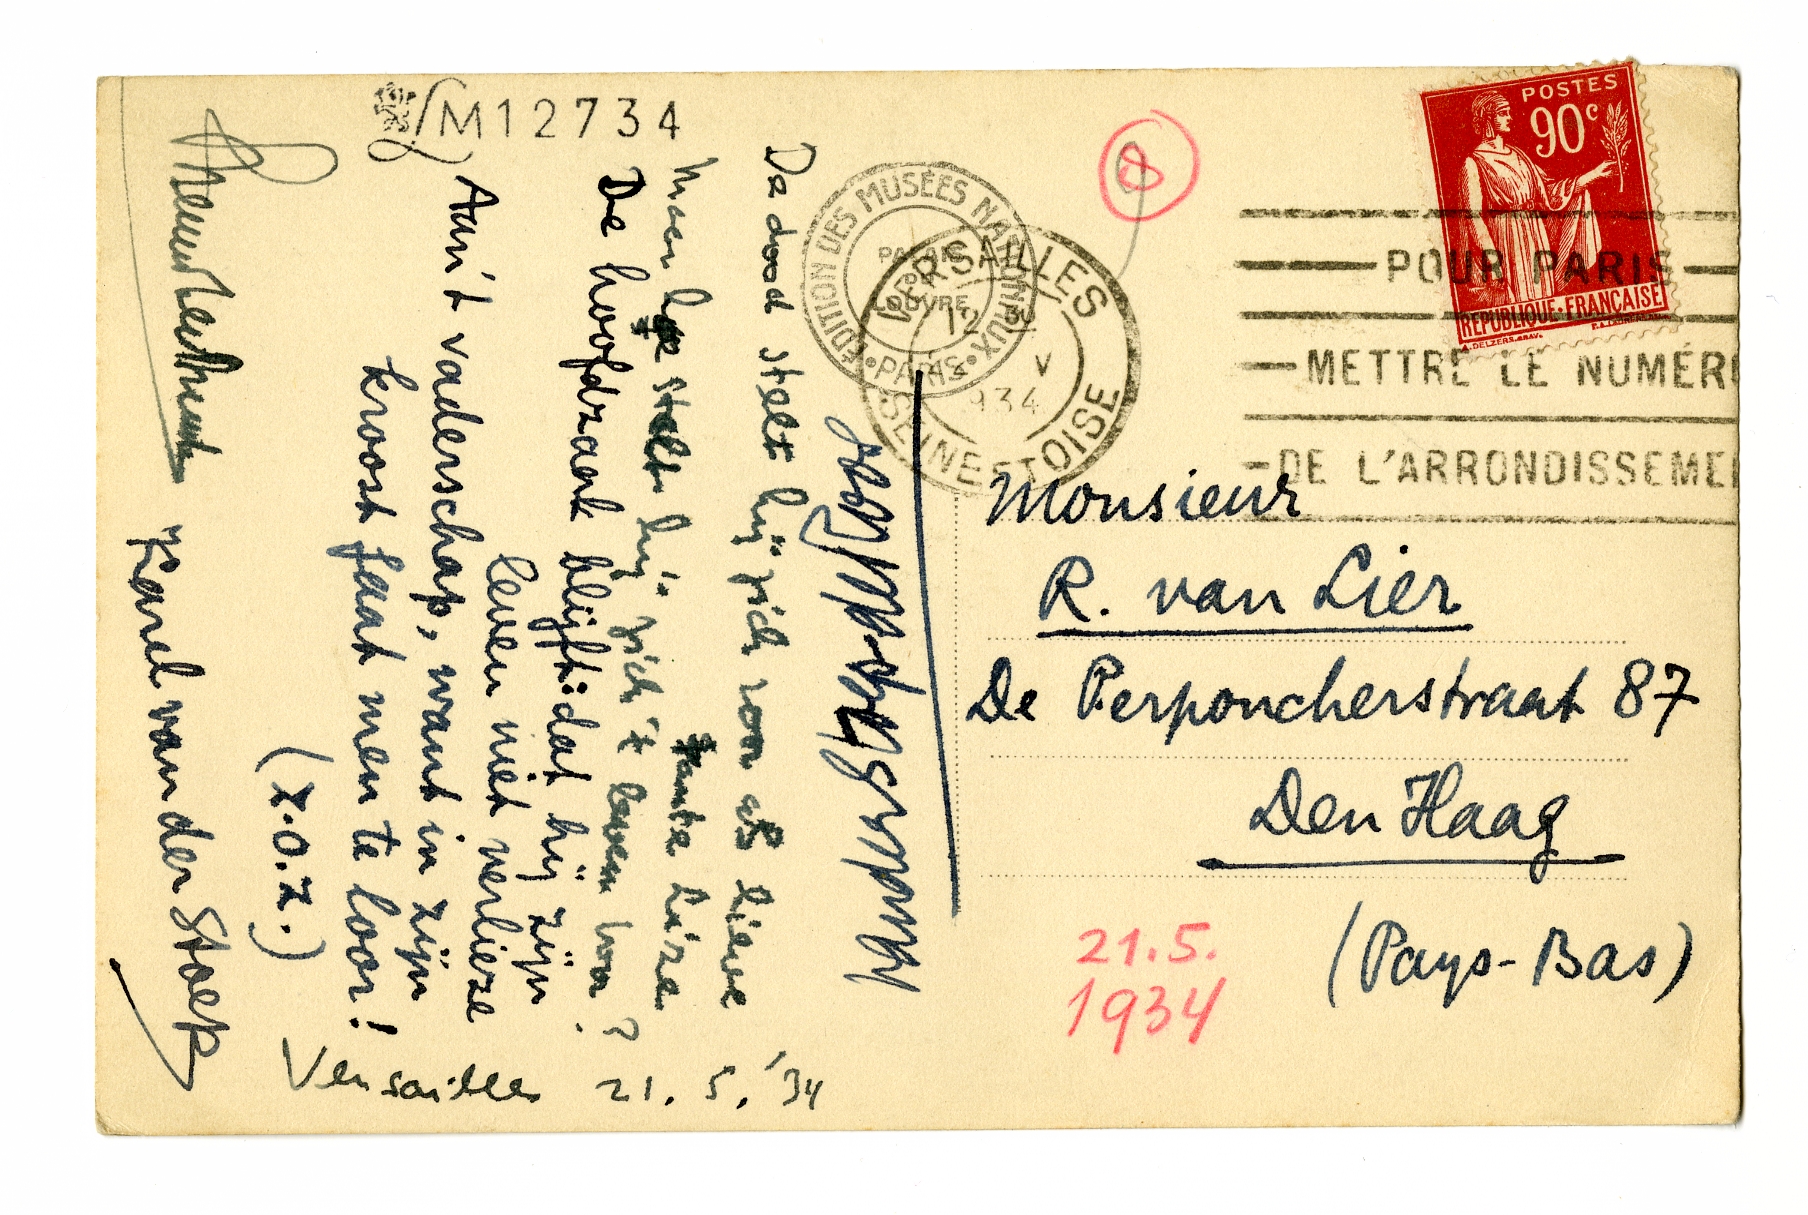 M12734
De dood stelt hij zich voor als lieve
Tante Lize.
Maar hoe stelt hij zich 't leven voor?
De hoofdzaak blijft: dat hij zijn
leven niet verlieze
Aan 't vaderschap, want in zijn
kroost gaat men te loor!
(Z.O.Z.)
Karel van der Stoep
Versailles 21.5.'34
ÉDITION DES MUSÉES NATIONAUX
PALAIS
DU
LOUVRE
PARIS
VERSAILLES
12 30
V
934
SEINE ET OISE
8
POSTES
90c
REPUBLIQUE FRANÇAISE
A. DELZERS. GRAV.
POUR PARIS
METTRE LE NUMÉRO
DE L'ARRONDISSEMEN
Monsieur
R. van Lier
De Perponcherstraat 87
Den Haag
(Pays-Bas)
21.5.
1934